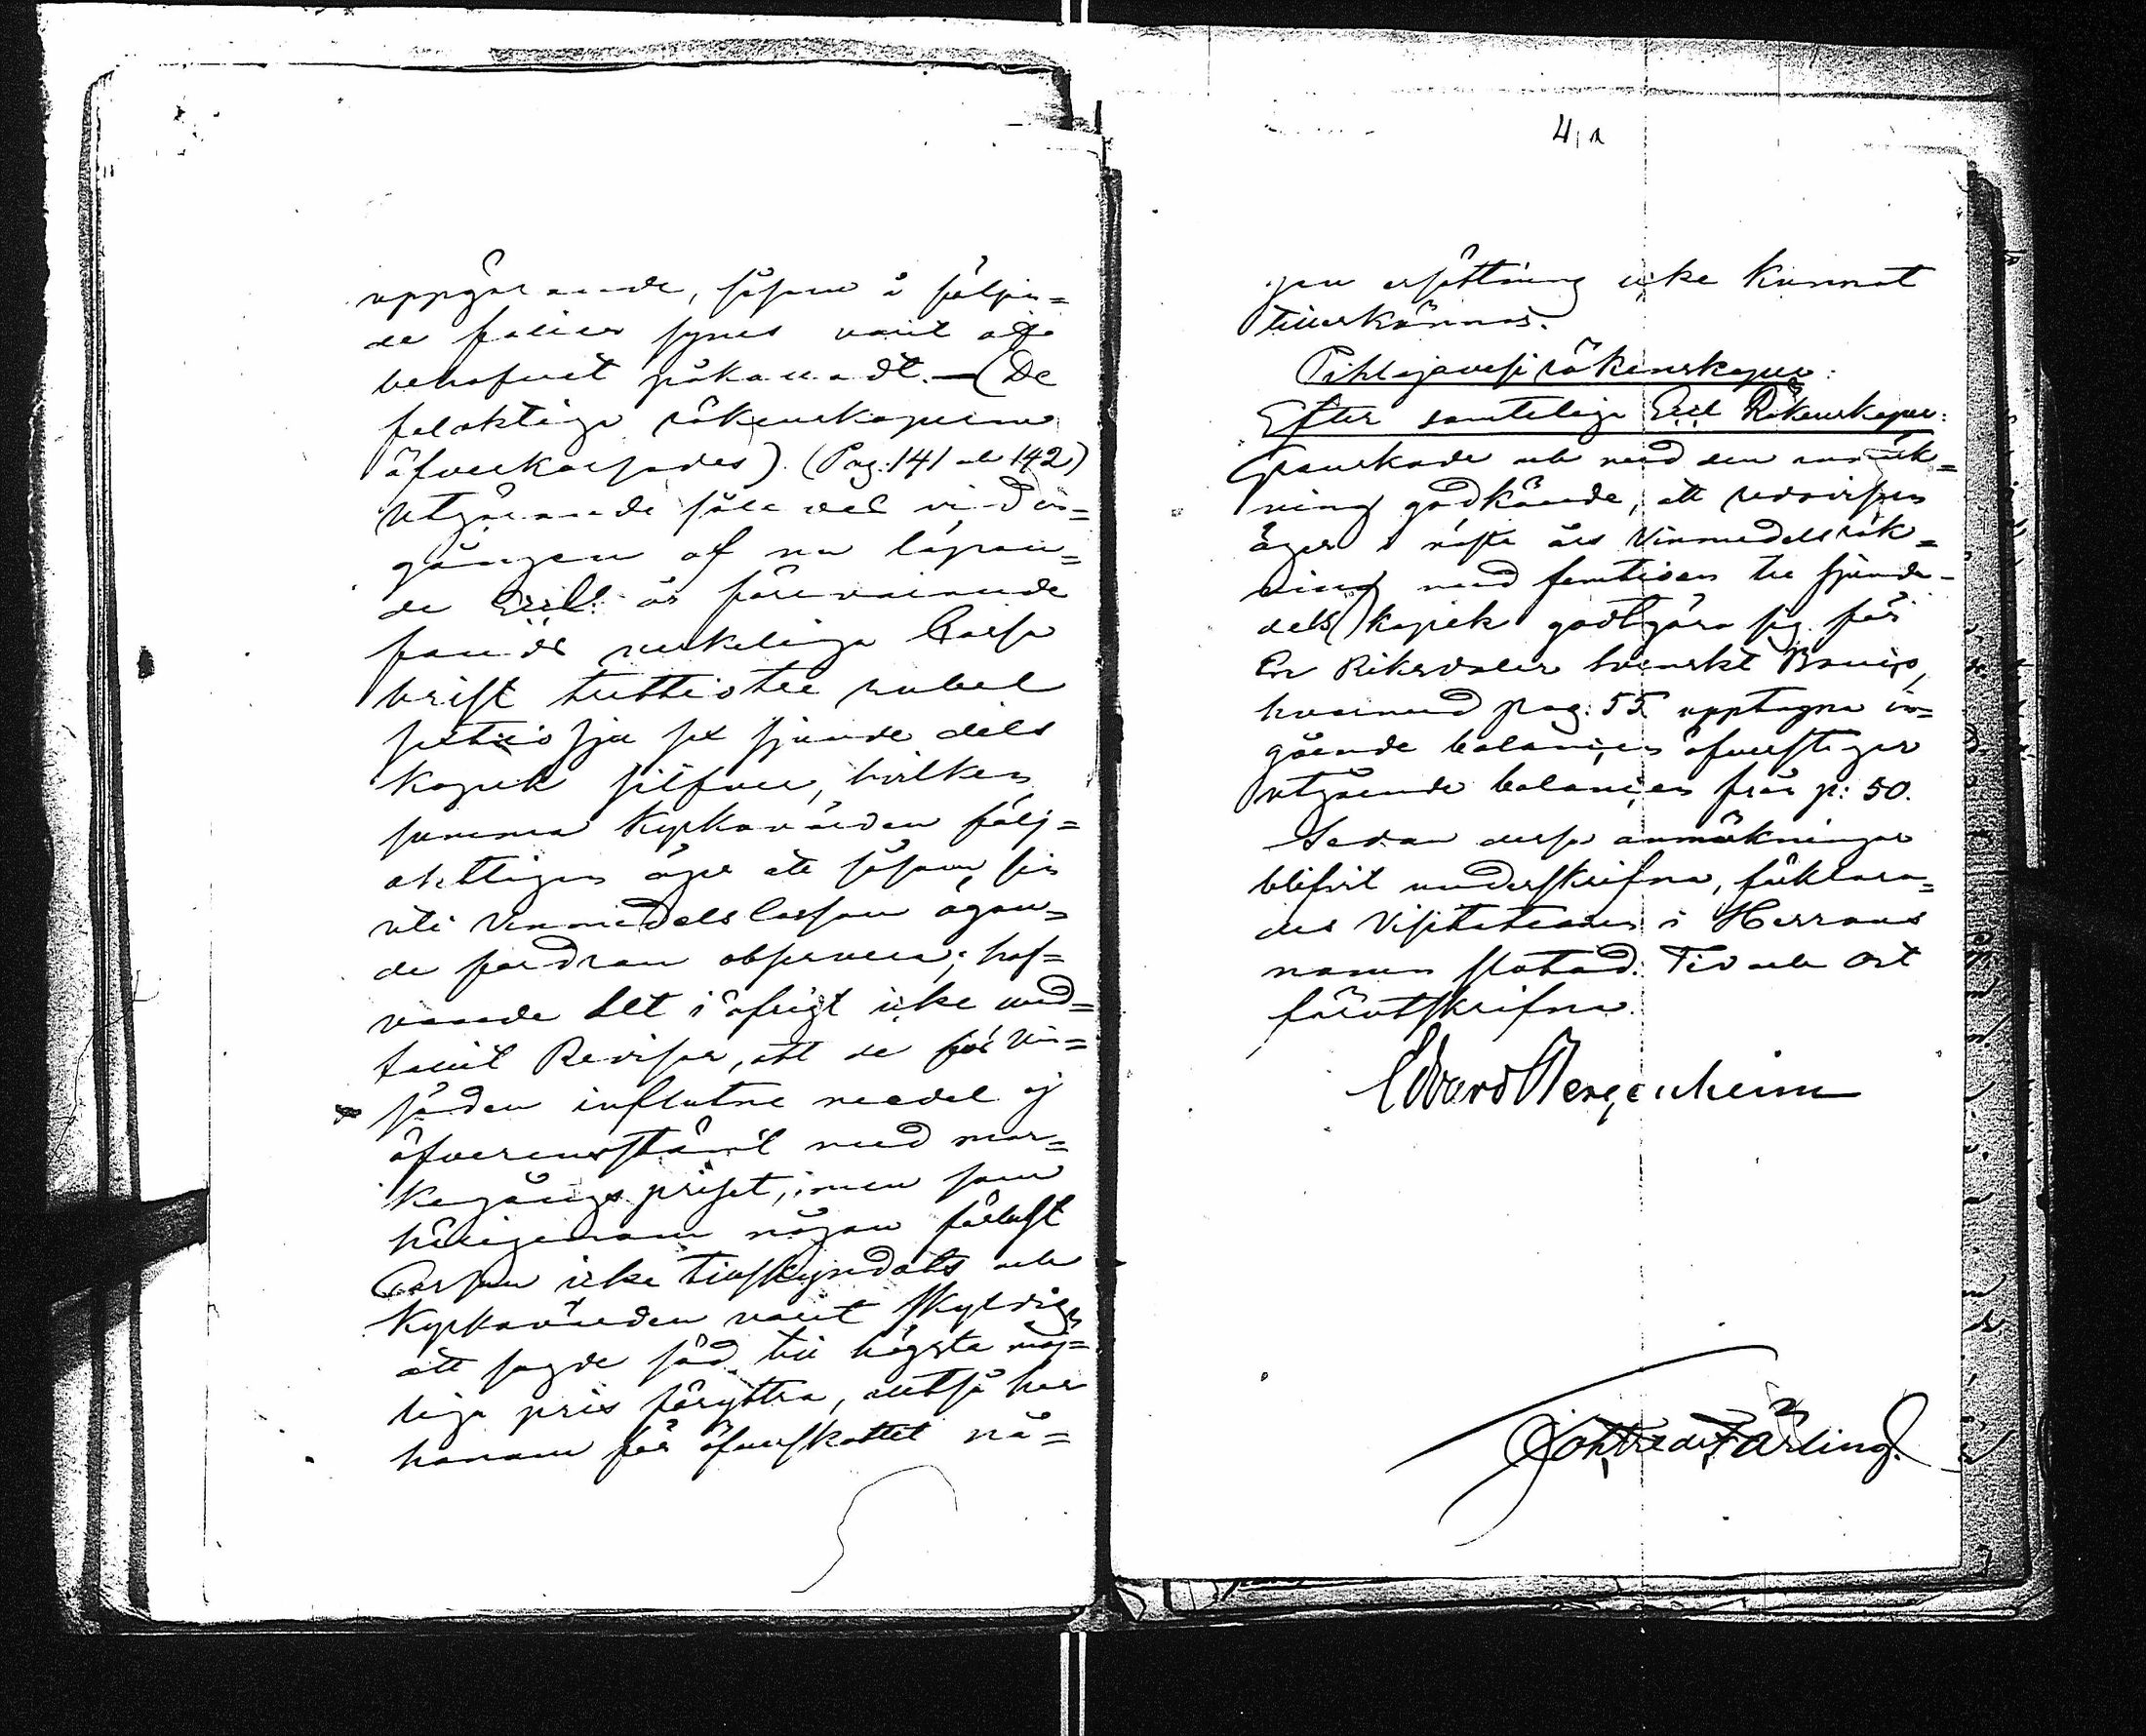 uppgörande, såsom å följan=
de folier synes varit af
behofvet påkalladt. — (De
felaktiga räkenskaperne
öfverkorsades). (Pag: 141 och 142)
Utgörande således vid in=
gången af nu löpan=
de Eccl: år förevarande
fonds verkeliga Cassa
brist trettiotre rubel
sextiosju sex sjunde dels
kopek silfver, hvilken
summa Kyrkovärden följ=
aktligen äger att såsom sin
uti Vinmedelscassan ägan=
de fordran observera; haf=
vande det i öfrigt icke und=
fallit Revisor, att de för Vin=
säden influtne medel ej
öfverensstämt med mar=
kegångspriset, men som
härigenom någon förlust
Cassan icke tillskyndats och
Kyrkovärden varit skyldig
att sagde säd till högsta möj=
liga pris föryttra, altså har
honom för öfverskottet nå=
4, 1
gon ersättning icke kunnat
tillerkännas.
Pihlajavesi räkenskaper:
Efter samtelige Eccl. Räkenskaper:
Granskade och med den anmärk=
ning godkände, att redovisaren
äger i nästa års Vinmedelsräk=
ning med femtioen tre sjunde=
dels kopek godtgöra sig för
En Riksdaler Svenskt Banco,
hvarmed pag. 55 upptagne in=
gående balancen öfverstiger
utgående balancen från p: 50.
Sedan dessa anmärkningar
blifvit underskrifne, förklara=
des Visitationen i Herrans
namn slutad. Tid och Ort
förutskrifne.
Edvard Bergenheim
Färling.